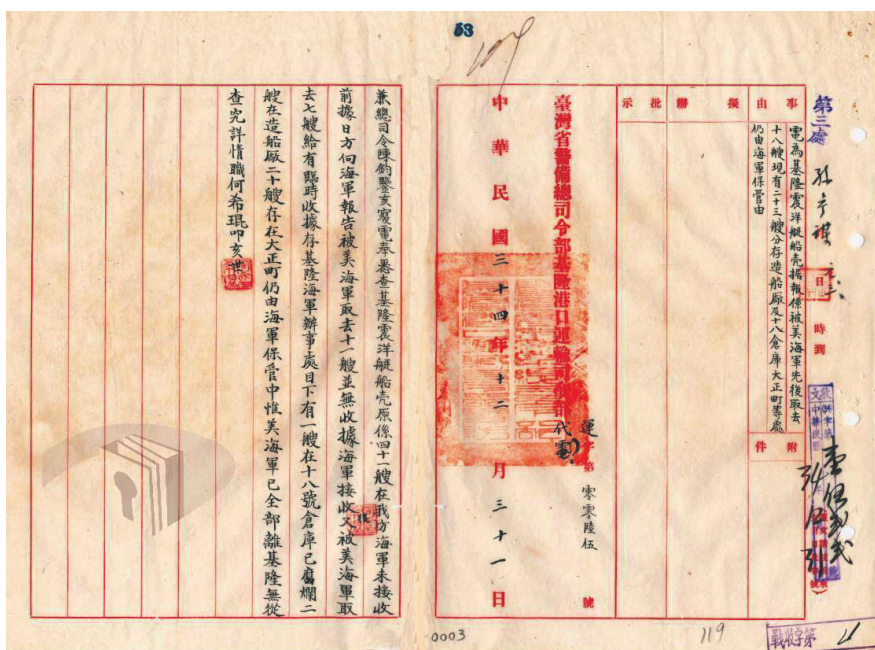 53
第三處
事由
電為基隆震洋艇船壳據報係被美海軍先後取去
十八艘現有二十三艘分存造船廠及十八倉庫大正町等處
仍由海軍保管由
附件
擬辦
批示
日
時到
臺灣省警備總司令部基隆港口運輸司令部
代電
運字第零零陸伍號
中華民國三十四年十二月三十一日
兼總司令陳鈞鑒亥寢電奉悉查基隆震洋艇船壳原係四十一艘在我方海軍未接收
前據日方向海軍報告被美海軍取去十一艘並無收據海軍接收又被美海軍取
去七艘給有臨時收據存基隆海軍辦事處目下有一艘在十八號倉庫已腐爛二
艘在造船廠二十艘存在大正町仍由海軍保管中惟美海軍已全部離基隆無從
查究詳情職何希琨叩亥世
0003
119
戰收字第